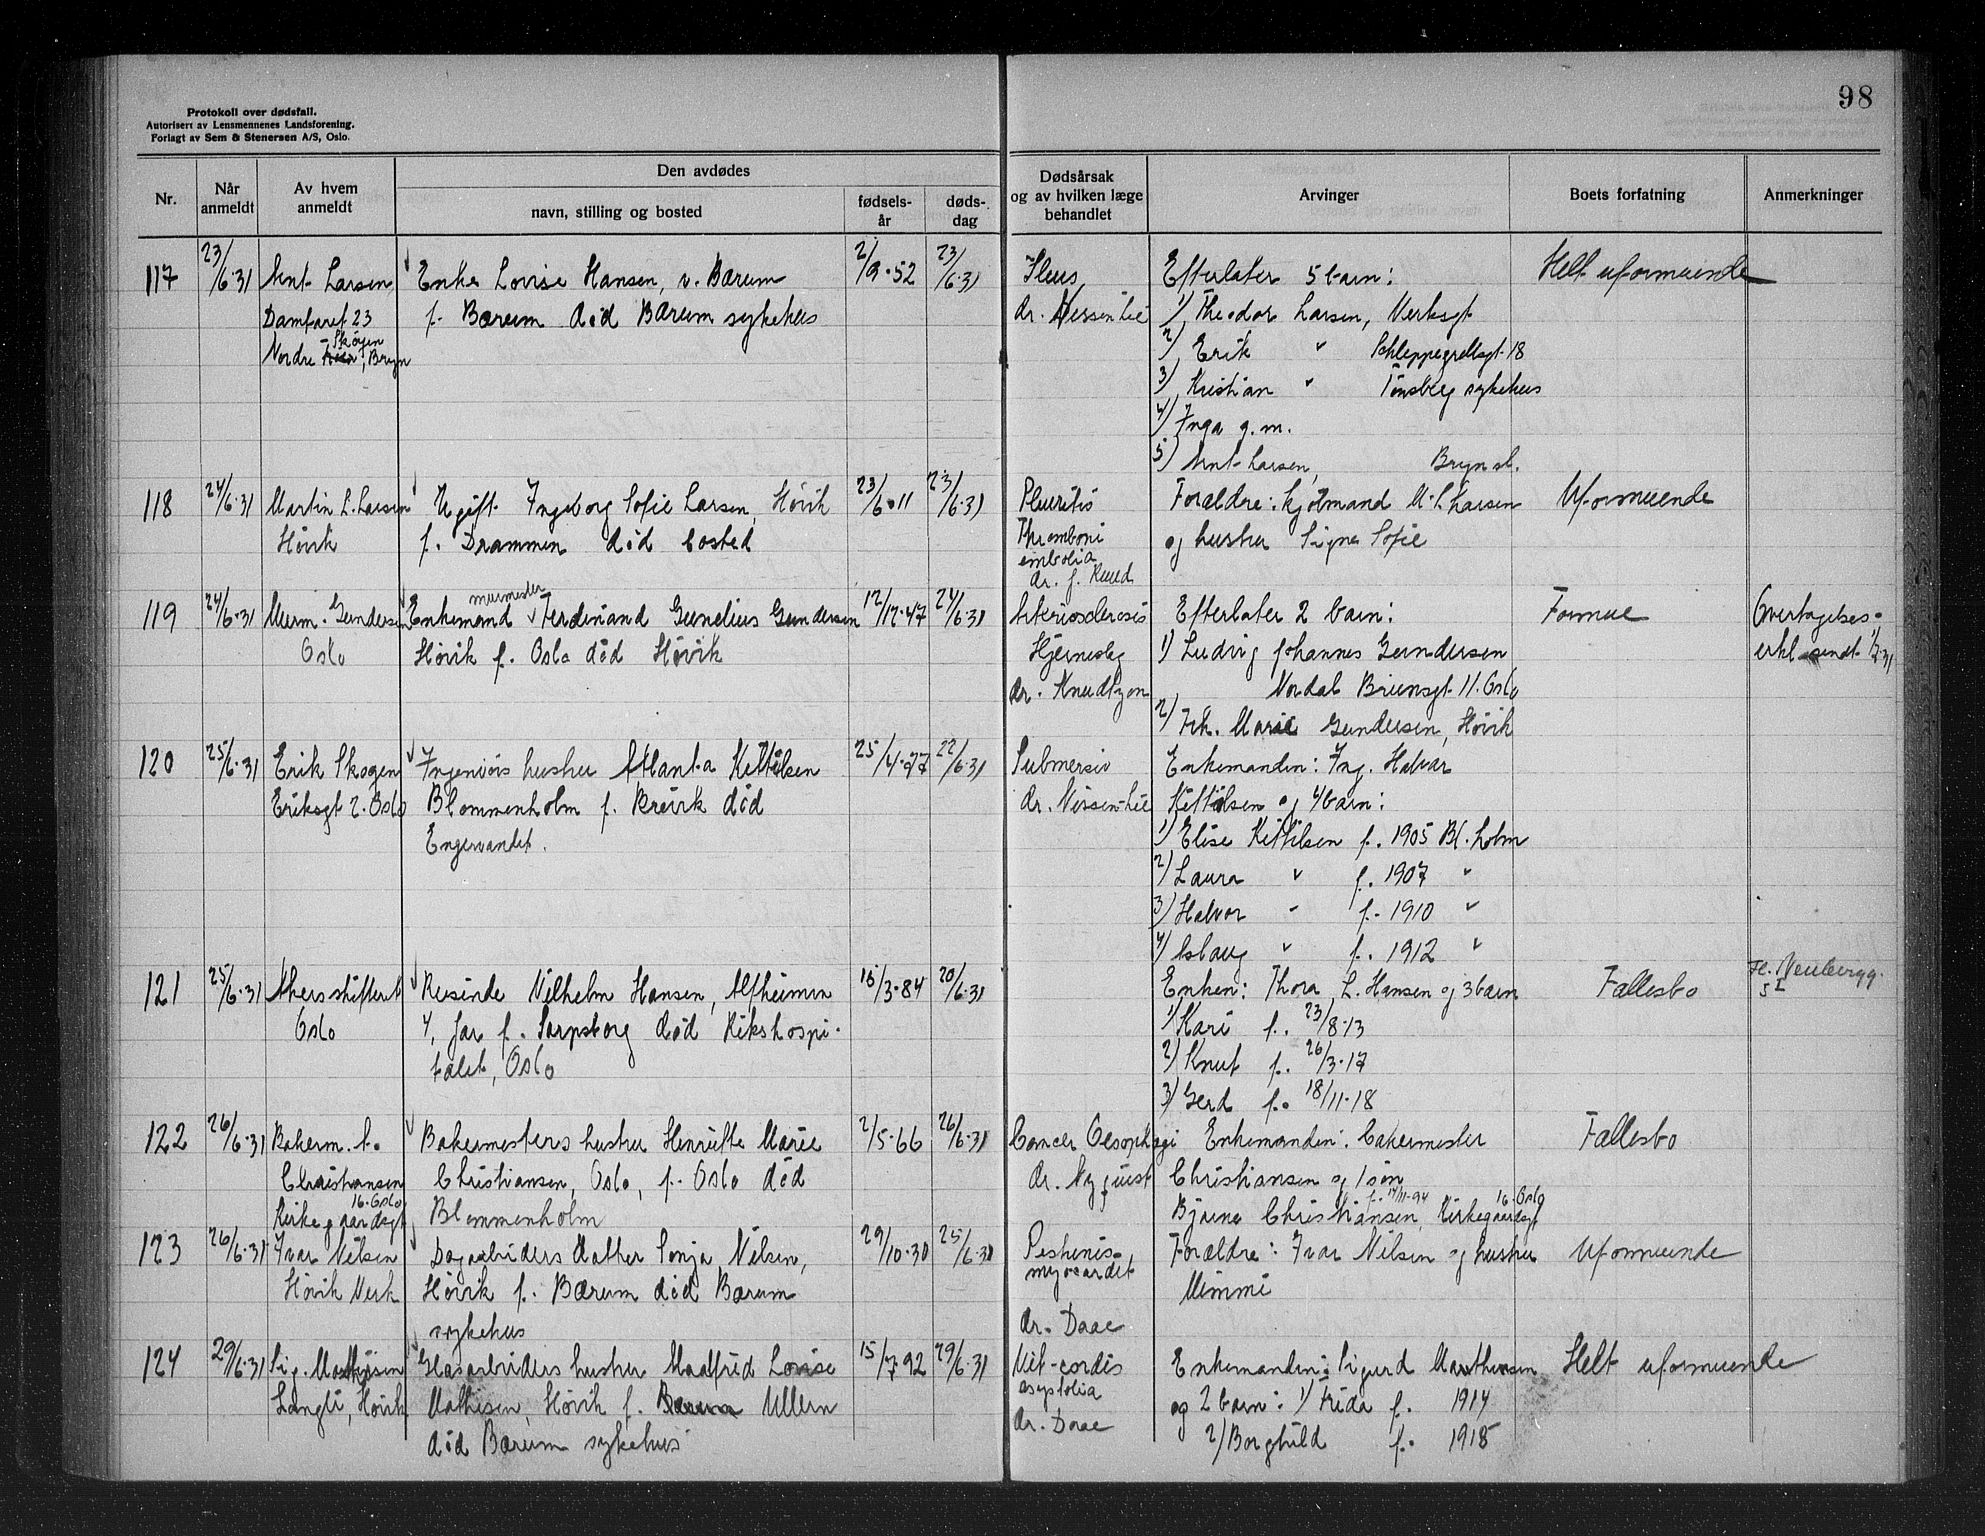 98
Protokoll over dødsfall.
Autorisert av Lensmennenes Landsforening.
Forlagt av Sem & Stenersen A/S, Oslo.
Nr.
Når anmeldt
Av hvem anmeldt
Den avdødes
navn, stilling og bosted
fødsels-år
døds-dag
Dødsårsak og av hvilken læge behandlet
Arvinger
Boets forfatning
Anmerkninger
117
23/6.31
Arnt Larsen
Damfaret 23
Nordre Skøyen, Bryn
Enke Lovise Hansen, v. Bærum
f. Bærum død Bærum sykehus
2/9.52
23/6.31
Ileus
dr. Nissen-Lie
Efterlater 5 barn:
1) Theodor Larsen, Verksgt
2) Erik " Schleppegrellsgt. 18
3) Kristian " Tønsberg sykehus
4) Inga g.m.
5) Arnt Larsen, Bryn st.
Helt uformuende
118
24/6.31
Martin L. Larsen
Høvik
Ugift Ingeborg Sofie Larsen, Høvik
f. Drammen død bosted
23/6.11
23/6.31
Pleuritis
Thromboni
embolia
dr. J. Ruud
Forældre: Kjølmand M. L. Larsen
og hustru Signe Sofie
Uformuende
119
24/6.31
Murm. Gundersen
Oslo
Enkemand murmester Ferdinand Gunelius Gundersen
Høvik f. Oslo død Høvik
12/12.47
24/6.31
Arteriosclerosis
Hjerneslag
dr. Knudtzon
Efterlater 2 barn:
1) Ludvig Johannes Gundersen
Nordal Brunsgt. 11. Oslo
2) Frk. Marie Gundersen, Høvik
Formue
Overtagelses-
erkl. sendt 1/7.31
120
25/6.31
Erik Skogen
Eriksgt 2. Oslo
Ingeniørs hustru Atlanta Kittilsen
Blommenholm f. Brevik død
Engervandet.
25/4.77
22/6.31
Submersio
dr. Nissen-Lie
Enkemanden: Ing. Halvar
Kittilsen og 4 barn:
1) Elise Kittilsen f. 1905 Bl.holm
2) Laura " f. 1907 "
3) Halvor " f. 1910 "
4) Aslaug " f. 1912 "
121
25/6.31
Akers skifterett
Oslo
Reisende Vilhelm Hansen, Alfheimvn
4, Jar f. Sarpsborg død Rikshospi-
talet, Oslo
15/3.84
20/6.31
Enken: Thora L. Hansen og 3 barn
1) Kari f. 23/8.13
2) Knut f. 26/3.17
3) Gerd f. 18/11.18
Fællesbo
122
26/6.31
Bakerm. A.
Christiansen
Kirkegaardsgt 16. Oslo
Bakermesters hustru Henriette Marie
Christiansen, Oslo, f. Oslo død
Blommenholm
2/5.66
26/6.31
Cancer Oesophagi
dr. Nyquist
Enkemanden: bakermester
Christiansen og 1 søn
f. 14/11-94
Bjarne Christiansen, Kirkegaardsgt 16. Oslo
Fællesbo
123
26/6.31
Ivar Nilsen
Høvik Verk
Dagarbeiders datter Sonja Nilsen,
Høvik f. Bærum død Bærum
sykehus
29/10.30
25/6.31
myocardit
dr. Daae
Forældre: Ivar Nilsen og hustru
Mimmi
Uformuende
124
29/6.31
Sig. Mathisen
Langli, Høvik
Glasarbeiders hustru Maalfrid Lovise
Mathisen, Høvik f. Bærum Ullern
død Bærum sykehus
15/7 92
29/6.31
Vit-cordis
asystolia
dr. Daae
Enkemanden: Sigurd Mathisen
og 2 barn: 1) Frida f. 1914
2) Borghild f. 1918
Helt uformuende